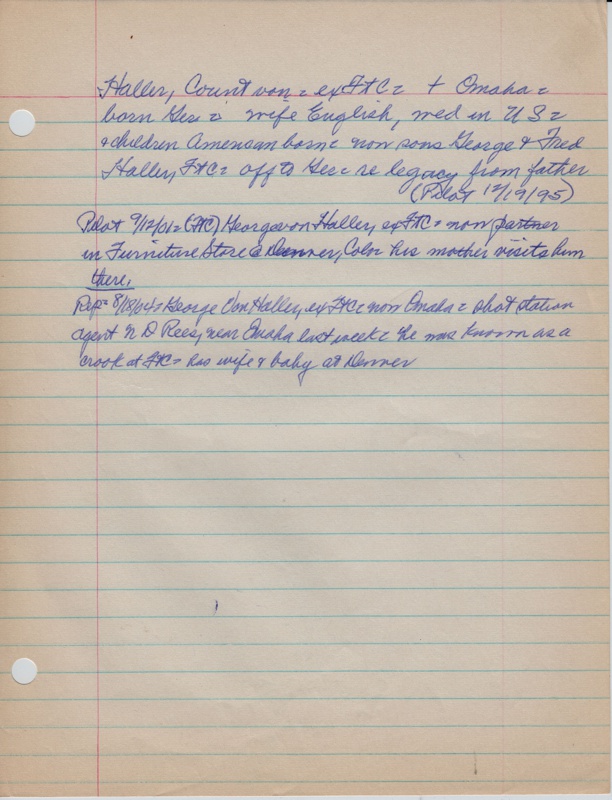 Haller, Count von = ex Ft C = + Omaha =
born Ger = wife English, wed in U S =
+ children American born = now sons George + Fred
Haller, Ft C = off to Ger = re legacy from father
(Pilot 12/19/95)
Pilot 9/12/01 = (FtC) George von Haller, ex FtC = now partner
in Furniture Store @ Denver, Colo = his mother visits him
there.
Rep = 8/18/04 = George Von Haller, ex FtC = now Omaha = shot station
agent N D Rees, near Omaha last week = he was known as a
crook at FtC = has wife + baby at Denver